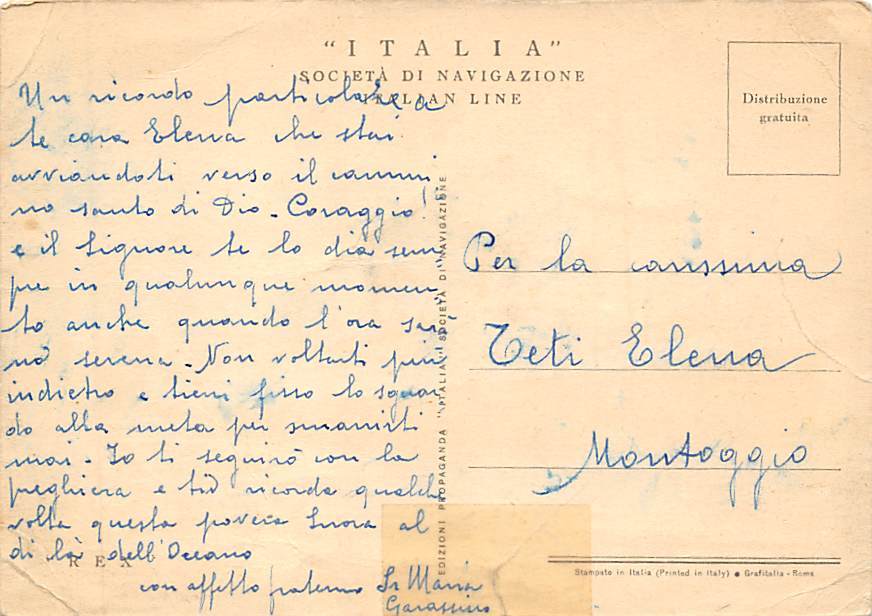 "ITALIA"
SOCIETÀ DI NAVIGAZIONE
ITALIAN LINE
Distribuzione
gratuita
Un ricordo particolare a
te cara Elena che stai
avviandoti verso il cammi
no santo di Dio - Coraggio!
e il Signore te lo dia sem
pre in qualunque momen
to anche quando l'ora sarà
no serena - Non voltarti più
indietro e tieni fisso lo sguar
do alla meta per smarrirti
mai - Io ti seguirò con la
preghiera e tu ricorda qualche
volta questa povera Suora al
di là dell'Oceano
con affetto fraterno Sr Maria
Garassino
REX
EDIZIONI PROPAGANDA "ITALIA" SOCIETÀ DI NAVIGAZIONE
Per la carissima
Teti Elena
Montoggio
Stampato in Italia (Printed in Italy) ● Grafitalia - Roma